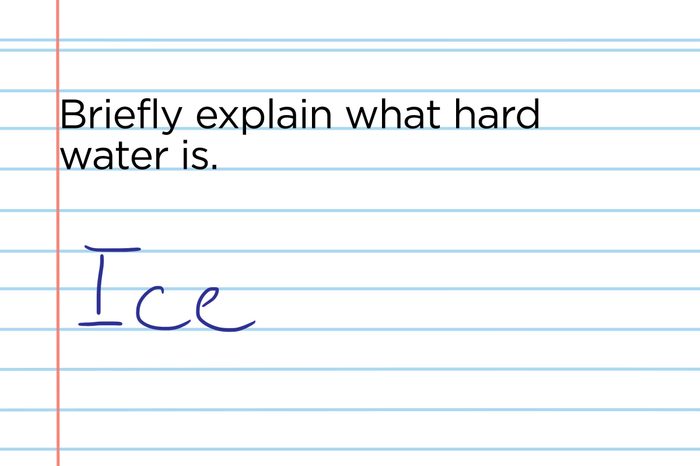 Briefly explain what hard
water is.
Ice